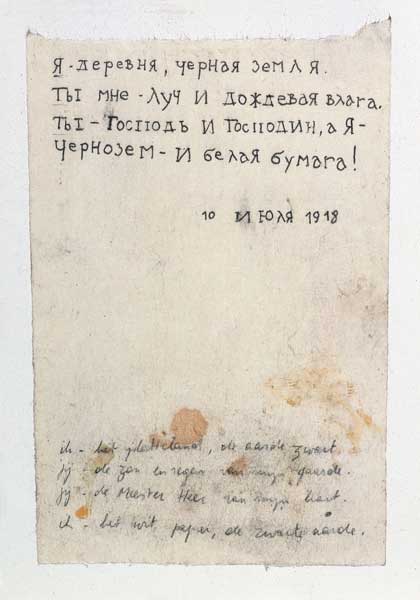 Я - деревня, черная земля.
Ты мне - луч и дождевая влага.
Ты - Господь и Господин, а я -
Чернозем - и белая бумага!
10 июля 1918
ik - het , de aarde zwart.
jij - de zon en regen van mijn gaarde.
jij - de Meester Heer van mijn hart.
ik - het wit papier, de zwarte aarde.